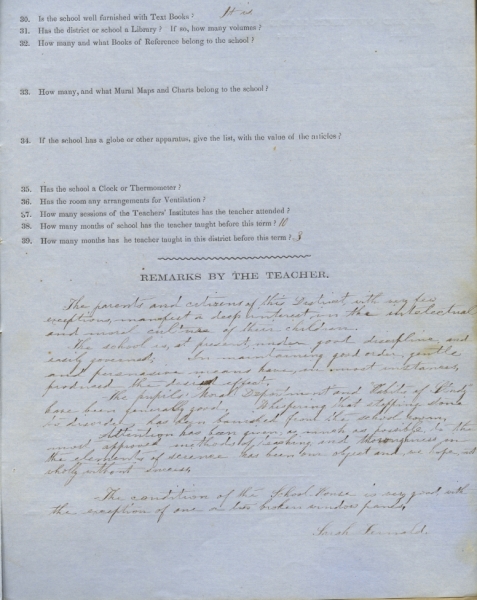 30. Is the school well furnished with Text Books? It is
31. Has the district or school a Library? If so, how many volumes?
32. How many and what Books of Reference belong to the school?
33. How many, and what Mural Maps and Charts belong to the school?
34. If the school has a globe or other apparatus, give the list, with the value of the articles?
35. Has the school a Clock or Thermometer?
36. Has the room any arrangements for Ventilation?
37. How many sessions of the Teachers' Institutes has the teacher attended?
38. How many months of school has the teacher taught before this term? 10
39. How many months has he teacher taught in this district before this term? 3
REMARKS BY THE TEACHER.
The parents and citizens of this District with very few
exceptions, manifest a deep interest in the intellectual
and moral culture of their children.
The school is, at present, under good discipline, and
easily governed; In maintaining good order, gentle
and persuasive means have, in most instances,
produced the desired effect.
The pupils' Moral Department and Habits of Study
have been generally good. Whispering that stepping stone
to disorder, has been banished from the school room,
Attention has been given, as much as possible to the
most approved methods of teaching and thoroughness in
the elements of science has been our object and we hope, not
wholly without success.
The condition of the School House is very good with
the exception of one or two broken window panes,
Sarah